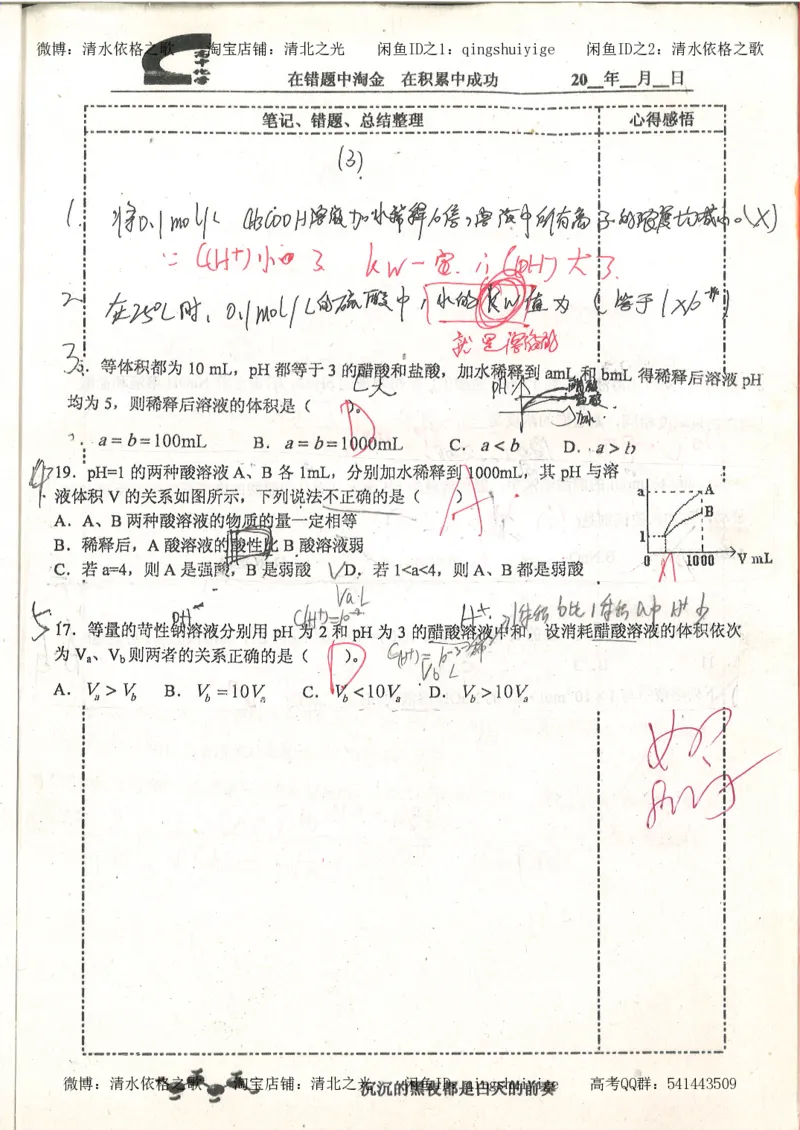 微博：清水依格之歌 淘宝店铺：清北之光 闲鱼ID之1：qingshuiyige 闲鱼ID之2：清水依格之歌
在错题中淘金 在积累中成功 20__年__月__日
笔记、错题、总结整理 心得感悟
(3)
1. 将0.1mol/L CH3COOH溶液加水稀释 倍，溶液中所有离子的浓度均减小。(×)
∵ C(H+)小了 kw一定 ∴ C(OH)大了.
2 在25℃时，0.1mol/L的硫酸中，水的kw值为（等于1×10⁻¹⁴）
就是
3. 等体积都为 10 mL，pH 都等于 3 的醋酸和盐酸，加水稀释到 amL 和 bmL 得稀释后溶液 pH
PH 醋酸
盐酸
加水
均为 5，则稀释后溶液的体积是（ D ）。
a = b = 100mL B. a = b = 1000mL C. a < b D. a > b
4 19. pH=1 的两种酸溶液 A、B 各 1mL，分别加水稀释到 1000mL，其 pH 与溶
液体积 V 的关系如图所示，下列说法不正确的是（ ） A
A. A、B 两种酸溶液的物质的量一定相等
B. 稀释后，A 酸溶液的酸性比 B 酸溶液弱
C. 若 a=4，则 A 是强酸，B 是弱酸 D. 若 1<a<4，则 A、B 都是弱酸
a A
B
1
0 1000 V mL
Va L
PH C(H+)=10⁻² H+
5 17. 等量的苛性钠溶液分别用 pH 为 2 和 pH 为 3 的醋酸溶液中和，设消耗醋酸溶液的体积依次
为 Va、Vb则两者的关系正确的是（ D ）。 C(H+)=10⁻³
Vb L
A. Va > Vb B. Vb = 10Va C. Vb < 10Va D. Vb > 10Va
微博：清水依格之歌 淘宝店铺：清北之光 闲鱼ID：qingshuiyige 高考QQ群：541443509
沉沉的黑夜都是白天的前奏